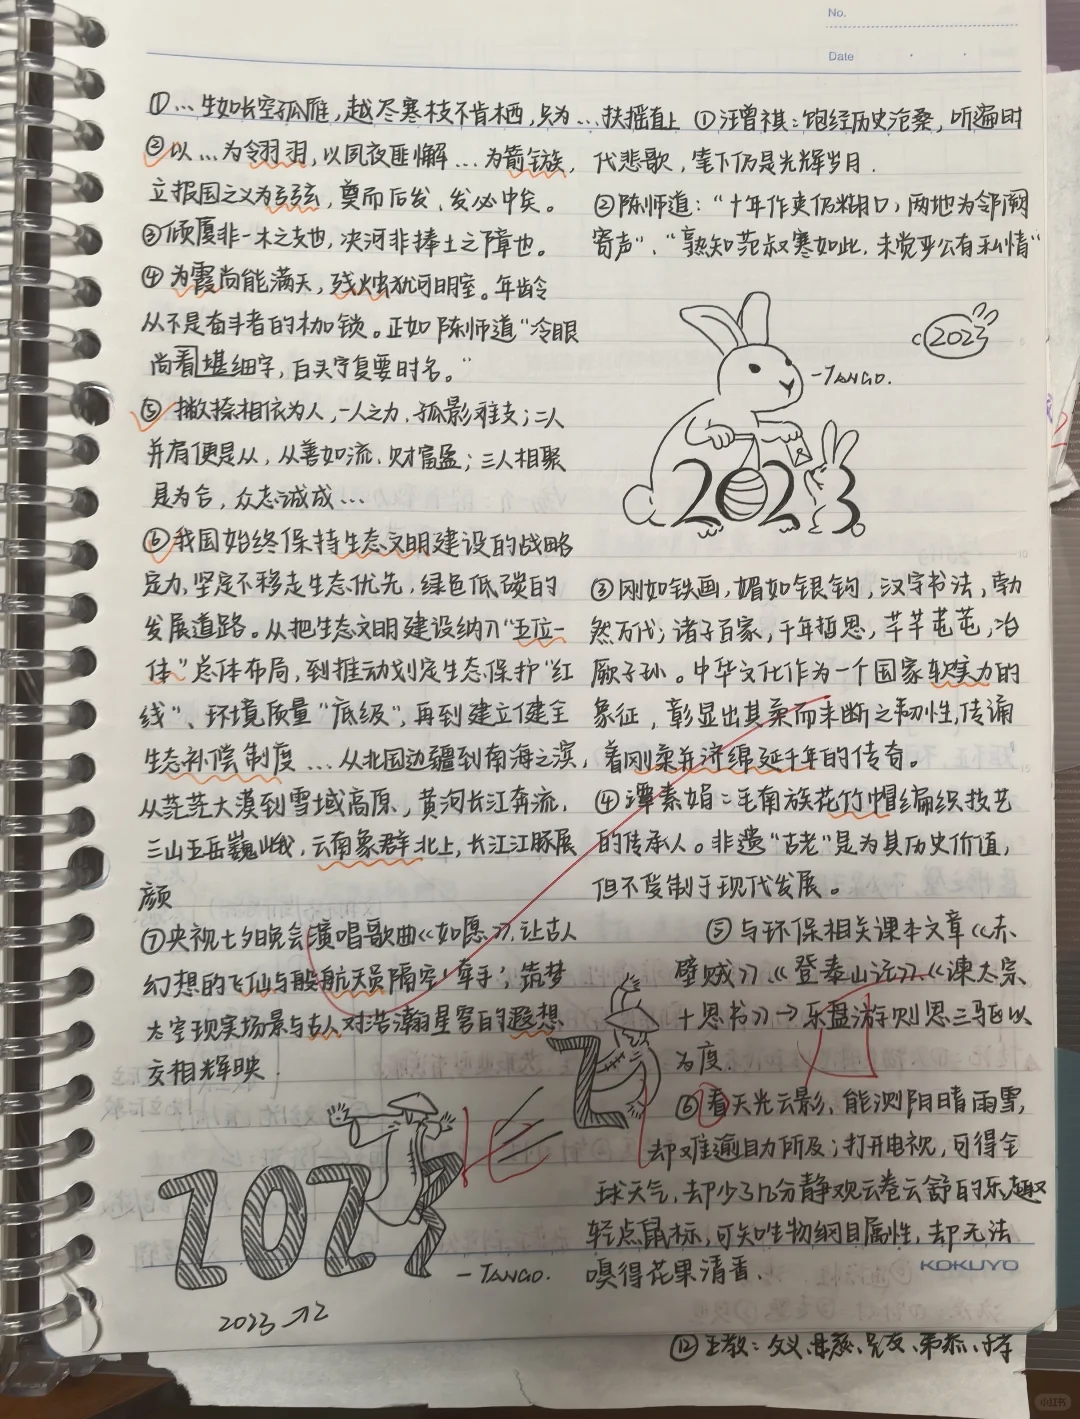 No.
Date
①…生如长空孤雁，越尽寒枝不肯栖，只为…扶摇直上
②以…为翎羽，以夙夜匪懈…为箭镞，
立报国之义为弓弦，奠而后发、发必中矣。
③倾厦非一木之支也，决河非捧土之障也。
④为霞尚能满天，残烛犹可明室。年龄
从不是奋斗者的枷锁。正如陈师道“冷眼
尚看堪细字，白头宁复要时名。”
⑤撇捺相依为人，一人之力，孤影难支；二人
并肩便是从，从善如流、财富盈；三人相聚
是为合，众志诚成…
⑥我国始终保持生态文明建设的战略
定力，坚定不移走生态优先，绿色低碳的
发展道路。从把生态文明建设纳入“五位一
体”总体布局，到推动划定生态保护“红
线”、环境质量“底级”，再到建立健全
生态补偿制度…从北国边疆到南海之滨，
从茫茫大漠到雪域高原、黄河长江奔流，
三山五岳巍峨，云南象群北上，长江江豚展
颜
⑦央视七夕晚会演唱歌曲《如愿》，让古人
幻想的飞仙与般航天员隔空‘牵手’；筑梦
太空现实场景与古人对浩瀚星穹的遐想
交相辉映．
2023
-TANGO.
2023.12
①汪曾祺：饱经历史沧桑，听遍时
代悲歌，笔下仍是光辉岁月．
②陈师道：“十年作吏仍糊口，两地为邻阙
寄声”、“孰知范叔寒如此，未觉乎公有私情”
2023
-TANGO.
2023
③刚如铁画，媚如银钩，汉字书法，勃
然万代；诸子百家，千年哲思，芊芊芚芚，冶
厥子孙。中华文化作为一个国家软实力的
象征，彰显出其柔而未断之韧性，传诵
着刚柔并济绵延千年的传奇。
④谭素娟：毛南族花竹帽编织技艺
的传承人。非遗“古老”是为其历史价值，
但不受制于现代发展。
⑤与环保相关课本文章《赤
壁贼》《登泰山记》《谏太宗
十思书》→乐盘游则思三驱以
为度．
⑥看天光云影，能测阴晴雨雪，
却难逾目力所及；打开电视，可得全
球天气，去却少了几分静观云卷云舒的乐趣
轻点鼠标，可知生物纲目属性，却无法
嗅得花果清香．
KOKUYO
⑫五教：父义、母慈、兄友、弟恭、子孝
小红书